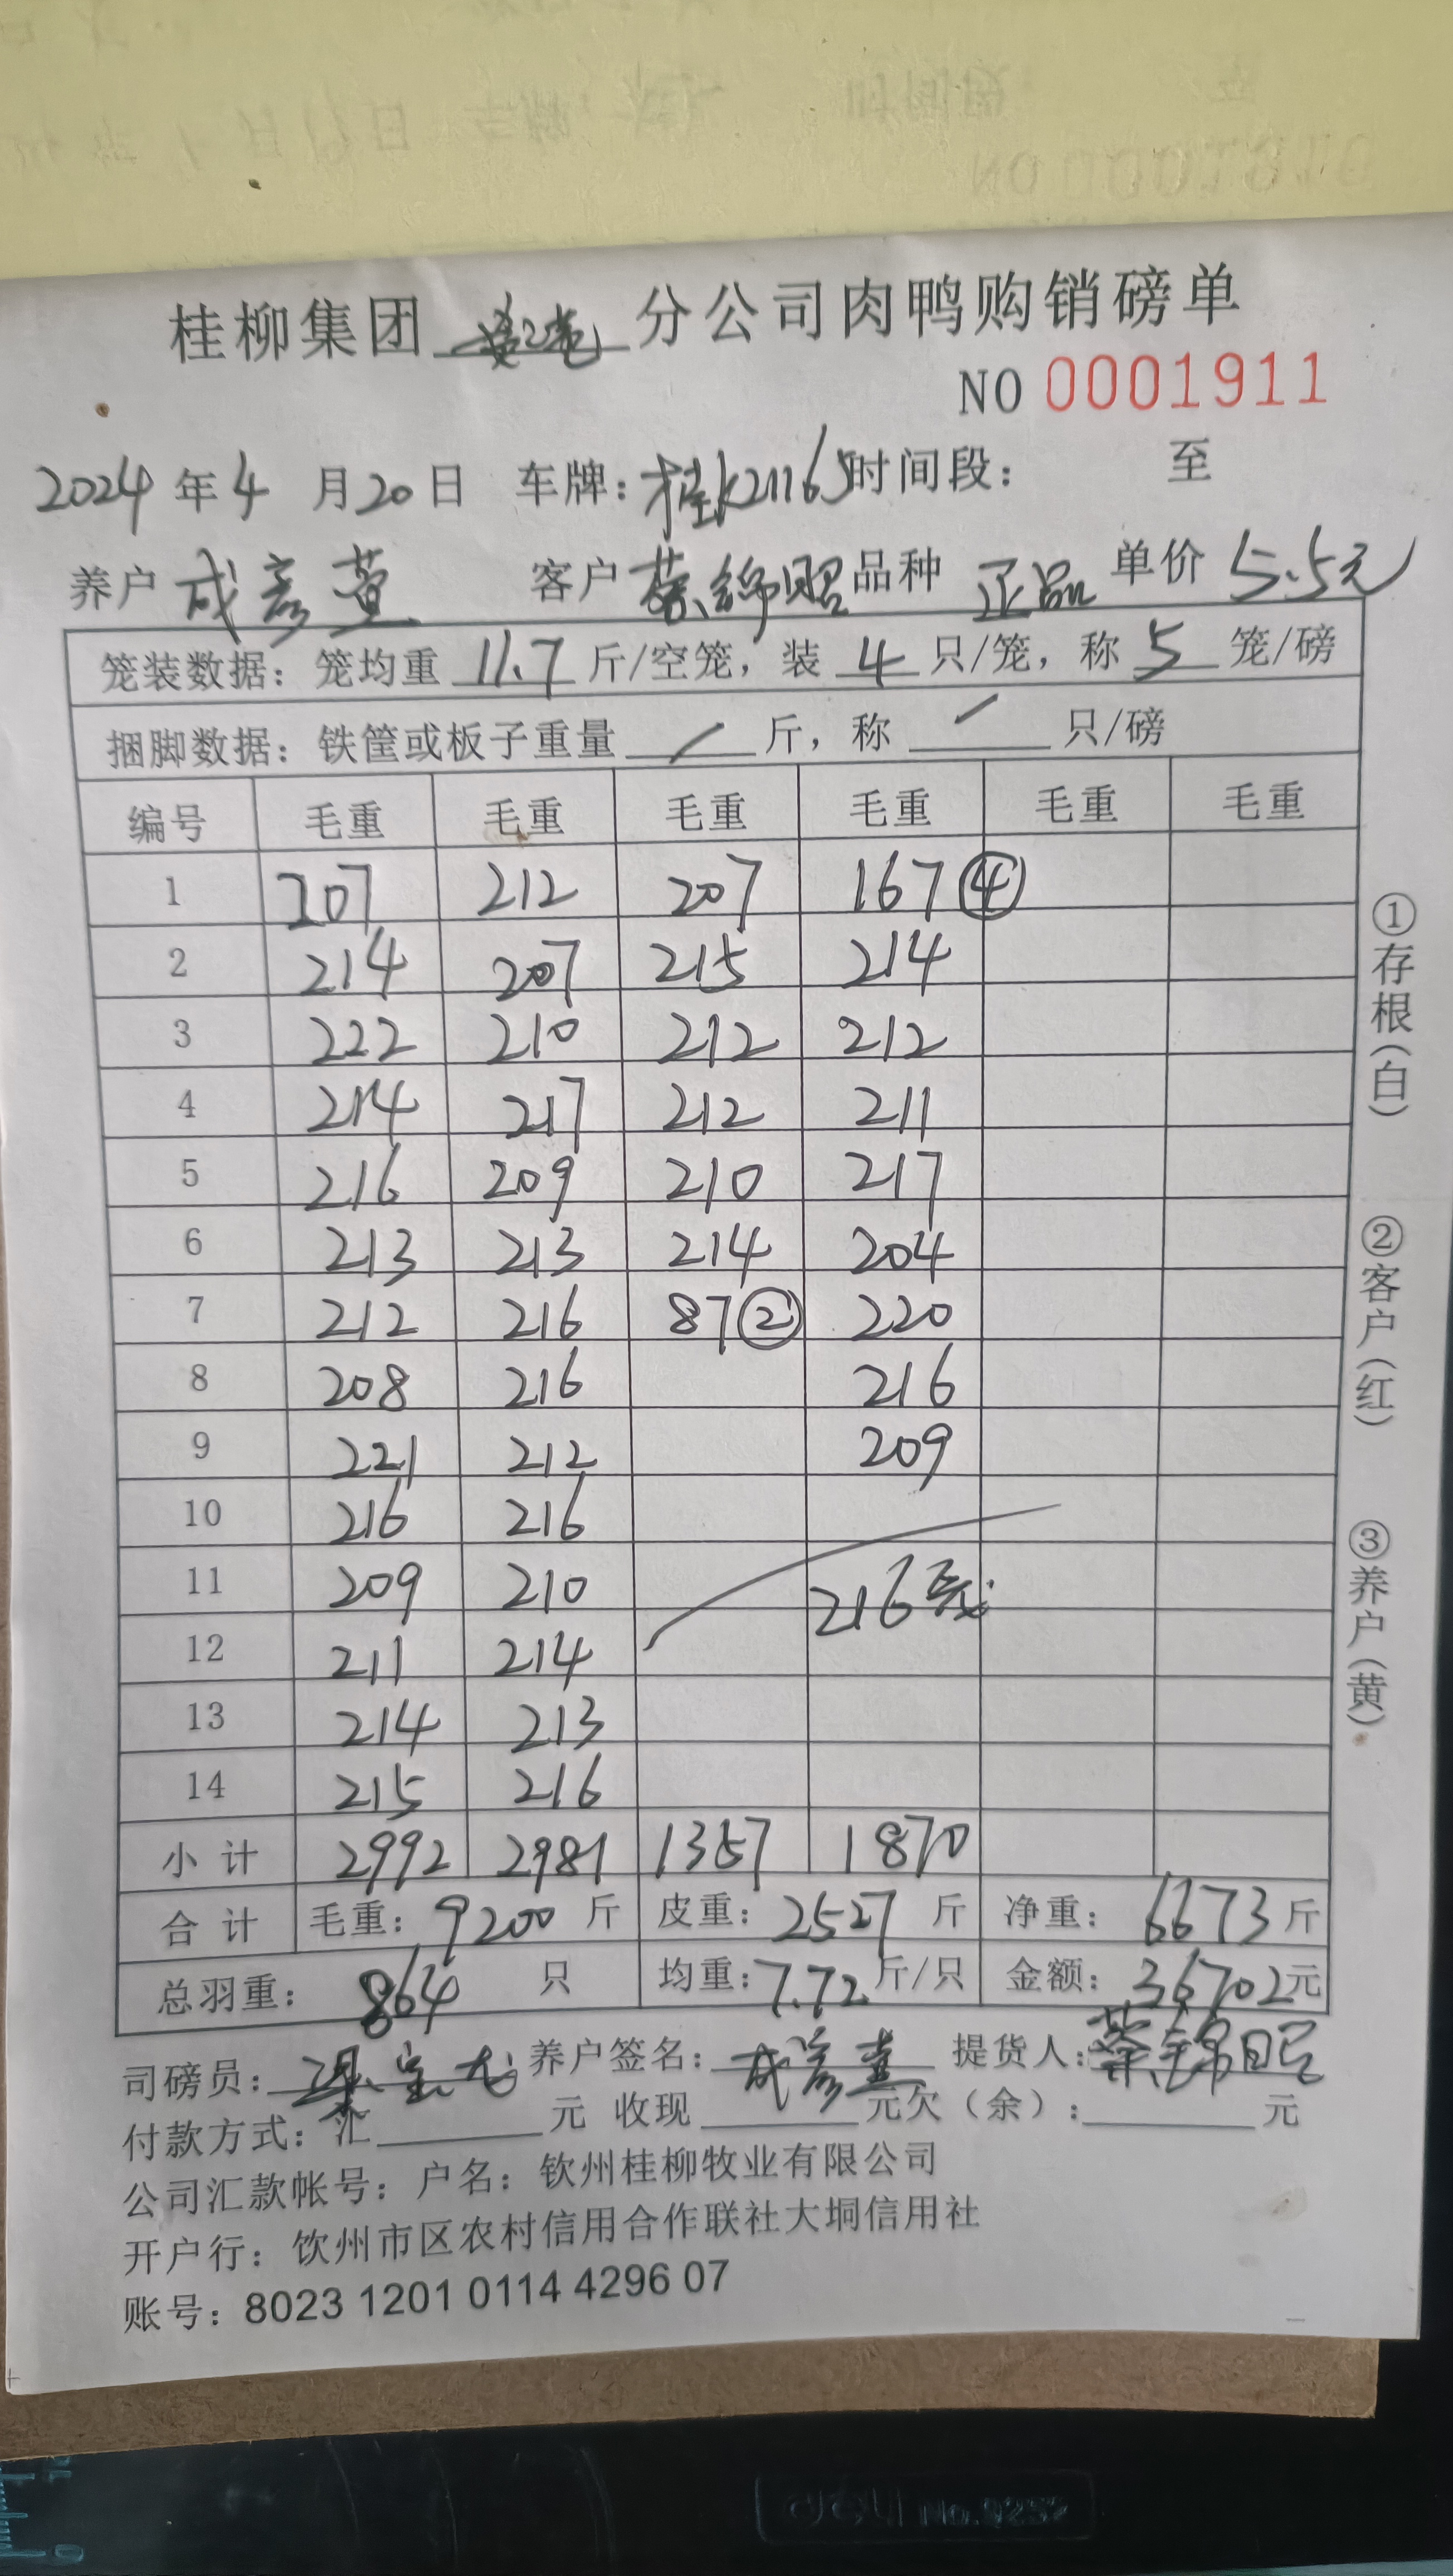 桂柳集团 分公司肉鸭购销磅单
NO 0001911
2024年4月20日 车牌：桂K21165 时间段： 至
养户 成彦萱 客户 蔡锦昭 品种 正品 单价 5.5元
笼装数据：笼均重 11.7 斤/空笼，装 4 只/笼，称 5 笼/磅
捆脚数据：铁筐或板子重量 / 斤，称 / 只/磅
编号 毛重 毛重 毛重 毛重 毛重 毛重
1 207 212 207 167 ④
2 214 207 215 214
3 222 210 212 212
4 214 217 212 211
5 216 209 210 217
6 213 213 214 204
7 212 216 87② 220
8 208 216 216
9 221 212 209
10 216 216
11 209 210 216
12 211 214
13 214 213
14 215 216
小计 2992 2981 1357 1870
合计 毛重：9200 斤 皮重：2527 斤 净重：6673 斤
总羽重：864 只 均重：7.72 斤/只 金额：36702元
司磅员： 养户签名：成彦萱 提货人：蔡锦昭
付款方式：汇 元 收现 元欠（余）： 元
公司汇款帐号：户名：钦州桂柳牧业有限公司
开户行：饮州市区农村信用合作联社大垌信用社
账号：8023 1201 0114 4296 07
①存根（白） ②客户（红） ③养户（黄）
deli No.9252